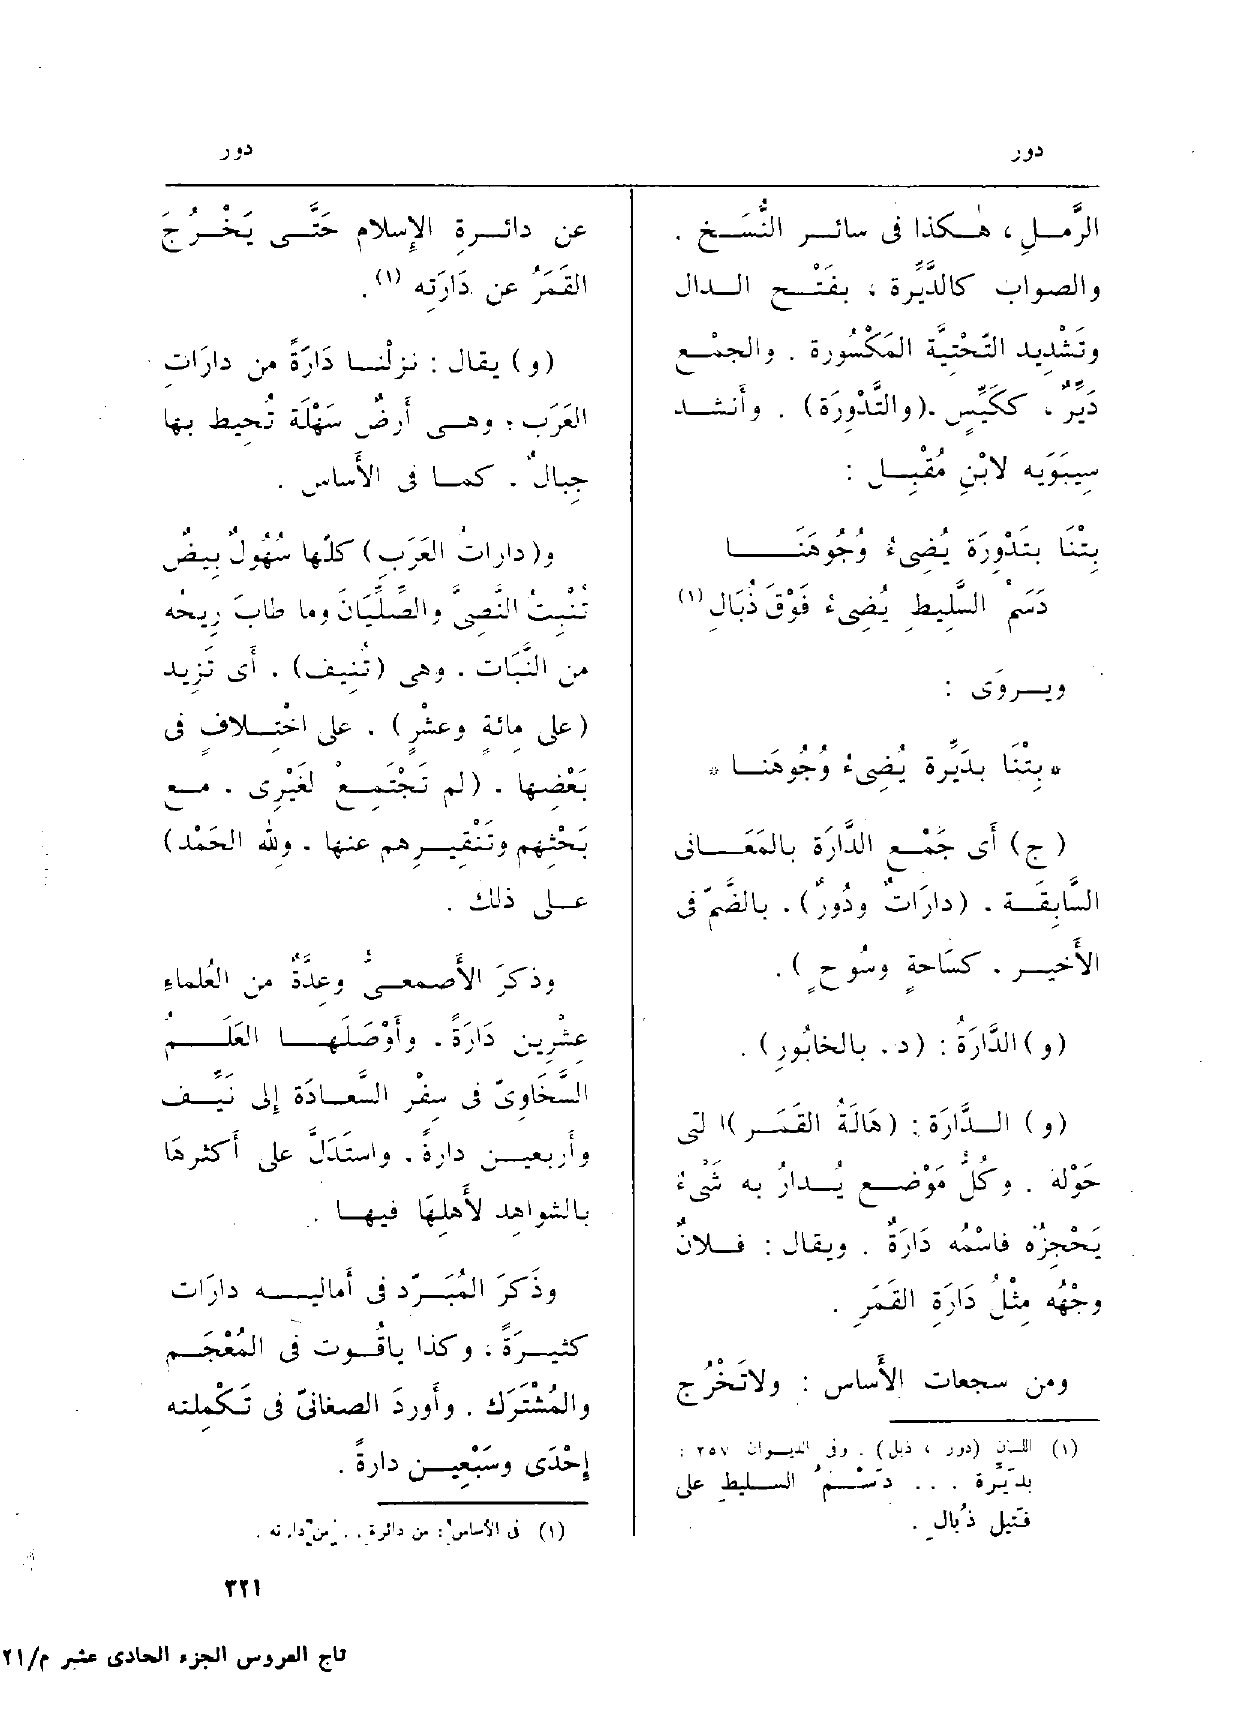 دور
دور
الرَّمْـلِ ، هٰـكذا فى سائـر النُّسَـخ .
والصواب كالدَّيِّرة ، بفَتْـح الـدال
وتشْديد التّحتيّة المَكْسُورة . والجمْـع
دَيِّرٌ ، ككَيِّسٍ .(والتَّدْوِرَة) . وأَنشـد
سِيبَوَيه لابْنِ مُقْبِـل :
بِتْنَا بتَدْوِرَة يُضِىءُ وُجُوهَنَــــا
دَسَمَ السَّلِيطِ يُضِىءُ فَوْقَ ذُبَالِ (١)
ويـروَى :
* بِتْنَا بدَيِّرة يُضِىءُ وُجُوهَنـا *
( ج) أَى جَمْـع الدَّارَة بالمَعَـانى
السَّابِقَـة . (دارَاتٌ ودُورٌ) . بالضَّمّ فى
الأَخيـر . كسَاحةٍ وسُوحٍ ) .
(و) الدَّارَةُ : (د. بالخابُورِ) .
(و) الـدَّارَة : (هَالَةُ القَمَـرِ )ا لتى
حَوْلَه . وكُلُّ مَوْضـع يُـدارُ به شَىْءٌ
يَحْجِزُه فاسْمُه دَارَةٌ . ويقال : فـلانٌ
وَجْهُه مِثْلُ دَارَةِ القَمَرِ .
ومن سجعات الأَساس : ولاتَخْرُج
(١) اللسان (دور ، ذبل) . وفى الديـوان ٢٥٧ :
بديِّرة . . . دَسْـمُ السـليطِ على
فتيل ذُبال .
عن دائـرةِ الإِسلام حَتَّـى يَخْـرُجَ
القَمَرُ عن دَارَتِه (١) .
(و) يقال : نزلْنـا دَارَةً من دارَات
العَرَب ، وهـى أَرضٌ سَهْلَة تُحيط بها
جِبالٌ . كمـا فى الأَساس .
و(دارَاتُ العَرَب) كلُّها سُهُولٌ بِيضٌ
تُنْبِتُ النَّصِىَّ والصِّلِّيَانَ وما طابَ رِيحُه
من النَّبَات . وهى (تُنِيف) . أَى تَزِيد
(على مائةٍ وعشْرٍ) . على اخْتِـلافٍ فى
بَعْضِها . (لم تَجْتَمِـع لغَيْرِى . مـع
بَحْثِهم وتَنْقِيـرِهم عنها . وللهِ الحَمْد)
عـلى ذلك .
وذكرَ الأَصمعـىُّ وعِدَّةٌ من العُلماءِ
عِشْرِين دَارَةً . وأَوْصَلَهـا العَلَـمُ
السَّخَاوِىّ فى سِفْر السَّعـادَة إلى نَيِّـف
وأَربعيـن دارةً . واستَدَلَّ على أَكثرهَا
بالشواهِد لأَهلِهَا فيهـا .
وذَكرَ المُبَـرّد فى أَماليـه دارَات
كثيـرَةً ، وكذا ياقُـوت فى المُعْجَـم
والمُشْتَرَك . وأَوردَ الصغانىّ فى تَكْمِلته
إِحْدَى وسَبْعِيـن دارةً .
(١) فى الأساس : من دائرة . . . من دارته .
٣٢١
تاج العروس الجزء الحادى عشر م/٢١